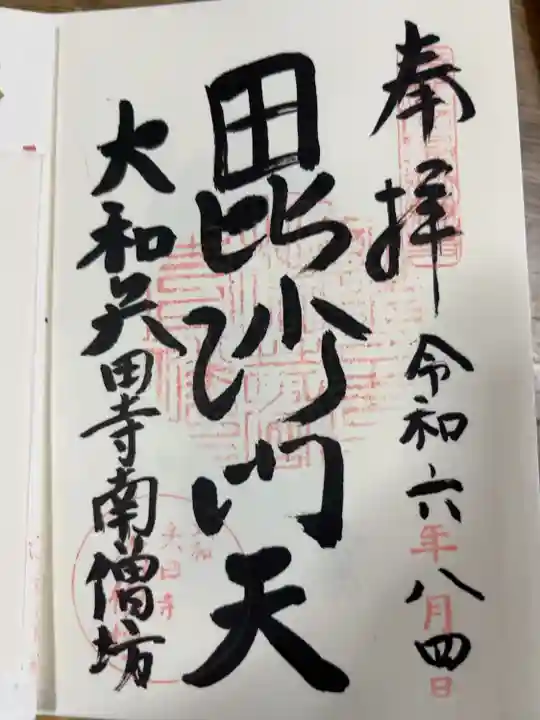 奉拝
令和六年八月四日
毘沙門天
大和矢田寺南僧坊
大和
矢田寺